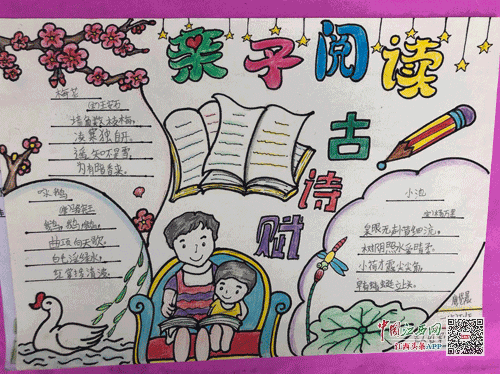 亲子阅读
古诗赋
梅花
墙角数枝梅,
凌寒独自开。
遥知不是雪,
为有暗香来。
咏鹅
鹅,鹅,鹅,
曲项向天歌。
白毛浮绿水,
红掌拨清波。
小池
宋杨万里
泉眼无声惜细流,
树阴照水爱晴柔。
小荷才露尖尖角,
早有蜻蜓立上头。
中国江西网
江西头条APP